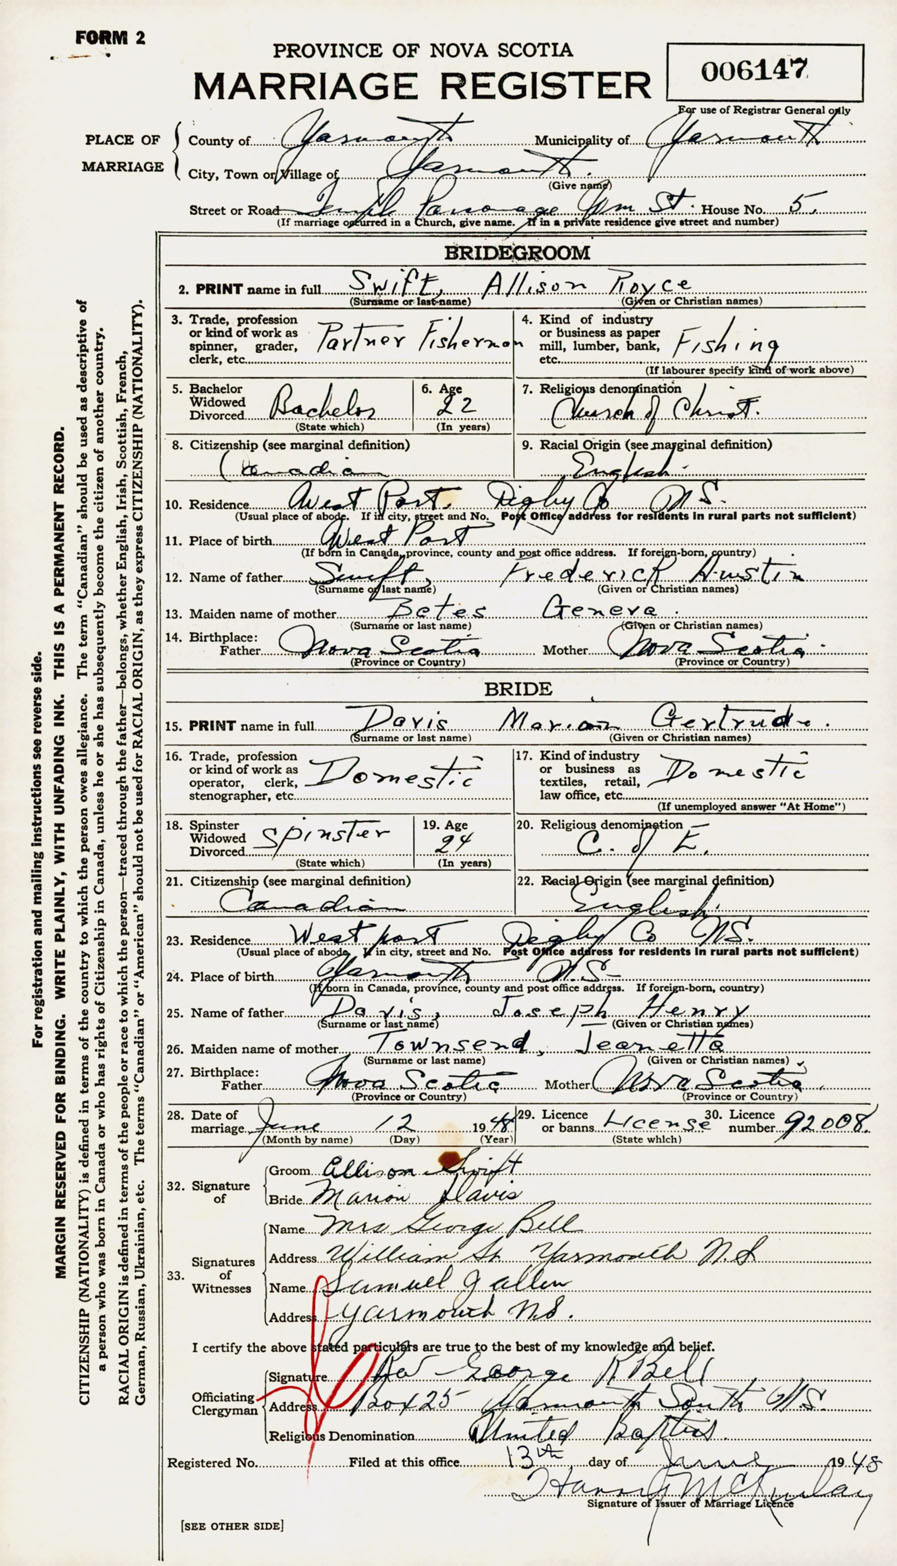 FORM 2
PROVINCE OF NOVA SCOTIA
MARRIAGE REGISTER
006147
For use of Registrar General only
PLACE OF MARRIAGE
County of Yarmouth Municipality of Yarmouth
City, Town or Village of Yarmouth
(Give name)
Street or Road Parsonage Wm St. House No. 5.
(If marriage occurred in a Church, give name. If in a private residence give street and number)
BRIDEGROOM
2. PRINT name in full Swift, Allison Royce
(Surname or last name) (Given or Christian names)
3. Trade, profession or kind of work as spinner, grader, clerk, etc. Partner Fisherman
4. Kind of industry or business as paper mill, lumber, bank, etc. Fishing
(If labourer specify kind of work above)
5. Bachelor Widowed Divorced Bachelor
(State which)
6. Age 22
(In years)
7. Religious denomination Church of Christ.
8. Citizenship (see marginal definition)
Canadian
9. Racial Origin (see marginal definition)
English
10. Residence West Port, Digby Co N.S.
(Usual place of abode. If in city, street and No. Post Office address for residents in rural parts not sufficient)
11. Place of birth West Port
(If born in Canada, province, county and post office address. If foreign-born, country)
12. Name of father Swift, Frederick Austin
(Surname or last name) (Given or Christian names)
13. Maiden name of mother Betes Geneva.
(Surname or last name) (Given or Christian names)
14. Birthplace: Father Nova Scotia Mother Nova Scotia
(Province or Country) (Province or Country)
BRIDE
15. PRINT name in full Davis Marian Gertrude.
(Surname or last name) (Given or Christian names)
16. Trade, profession or kind of work as operator, clerk, stenographer, etc. Domestic
17. Kind of industry or business as textiles, retail, law office, etc. Domestic
(If unemployed answer "At Home")
18. Spinster Widowed Divorced Spinster
(State which)
19. Age 24
(In years)
20. Religious denomination C. of E.
21. Citizenship (see marginal definition)
Canadian
22. Racial Origin (see marginal definition)
English
23. Residence West port Digby Co N.S.
(Usual place of abode, If in city, street and No. Post Office address for residents in rural parts not sufficient)
24. Place of birth Yarmouth N.S.
(If born in Canada, province, county and post office address. If foreign-born, country)
25. Name of father Davis, Joseph Henry
(Surname or last name) (Given or Christian names)
26. Maiden name of mother Townsend, Jeanetta
(Surname or last name) (Given or Christian names)
27. Birthplace: Father Nova Scotia Mother Nova Scotia
(Province or Country) (Province or Country)
28. Date of marriage June 12 1948
(Month by name) (Day) (Year)
29. Licence or banns License
(State which)
30. Licence number 92008
32. Signature of
Groom Allison Swift
Bride Marion Davis
33. Signatures of Witnesses
Name Mrs George Bell
Address William St. Yarmouth N.S
Name Samuel J Allen
Address Yarmouth N.S.
I certify the above stated particulars are true to the best of my knowledge and belief.
Officiating Clergyman
Signature Rev George R Bell
Address Box 25 Yarmouth South N.S.
Religious Denomination United Baptist
Registered No. Filed at this office 13th day of June 1948
Signature of Issuer of Marriage Licence
[SEE OTHER SIDE]
For registration and mailing instructions see reverse side.
MARGIN RESERVED FOR BINDING. WRITE PLAINLY, WITH UNFADING INK. THIS IS A PERMANENT RECORD.
CITIZENSHIP (NATIONALITY) is defined in terms of the country to which the person owes allegiance. The term "Canadian" should be used as descriptive of
a person who was born in Canada or who has rights of Citizenship in Canada, unless he or she has subsequently become the citizen of another country.
RACIAL ORIGIN is defined in terms of the people or race to which the person—traced through the father—belongs, whether English, Irish, Scottish, French,
German, Russian, Ukrainian, etc. The terms "Canadian" or "American" should not be used for RACIAL ORIGIN, as they express CITIZENSHIP (NATIONALITY).